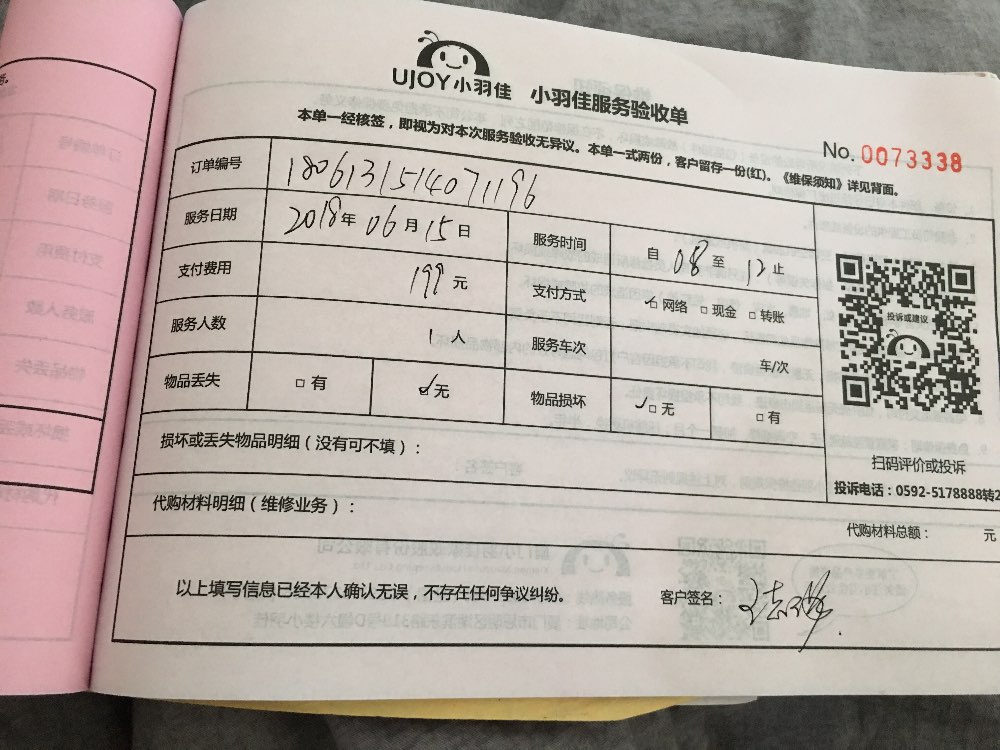 UJOY小羽佳 小羽佳服务验收单
本单一经核签，即视为对本次服务验收无异议。本单一式两份，客户留存一份(红)。《维保须知》详见背面。
No. 0073338
订单编号 1806131514071196
服务日期 2018年06月15日 服务时间 自08至12止
支付费用 199元 支付方式 ☑网络 □现金 □转账
服务人数 1人 服务车次 车/次
物品丢失 □有 ☑无 物品损坏 ☑无 □有
投诉或建议
扫码评价或投诉
投诉电话：0592-5178888转2
损坏或丢失物品明细（没有可不填）：
代购材料明细（维修业务）：
代购材料总额： 元
以上填写信息已经本人确认无误，不存在任何争议纠纷。 客户签名：